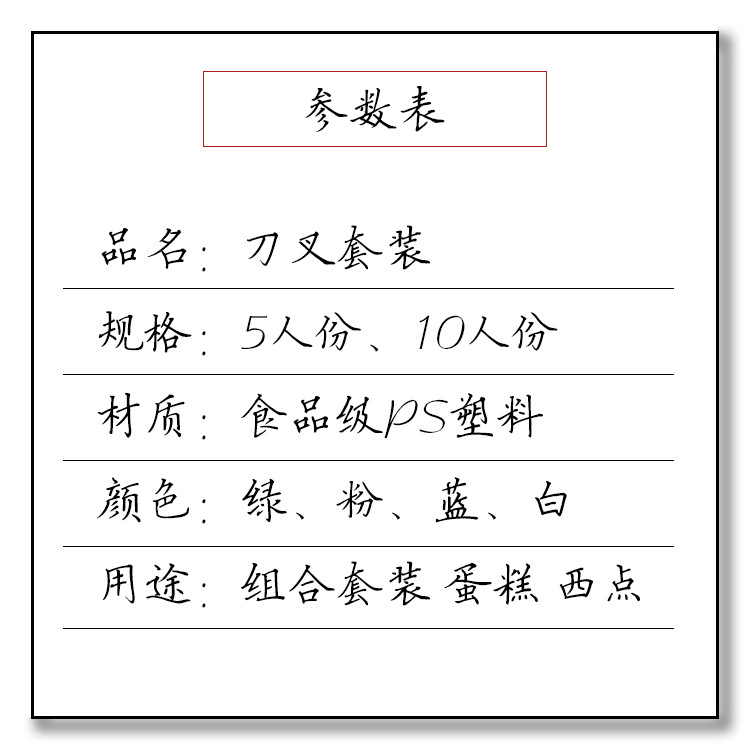 参数表
品名：刀叉套装
规格：5人份、10人份
材质：食品级PS塑料
颜色：绿、粉、蓝、白
用途：组合套装 蛋糕 西点